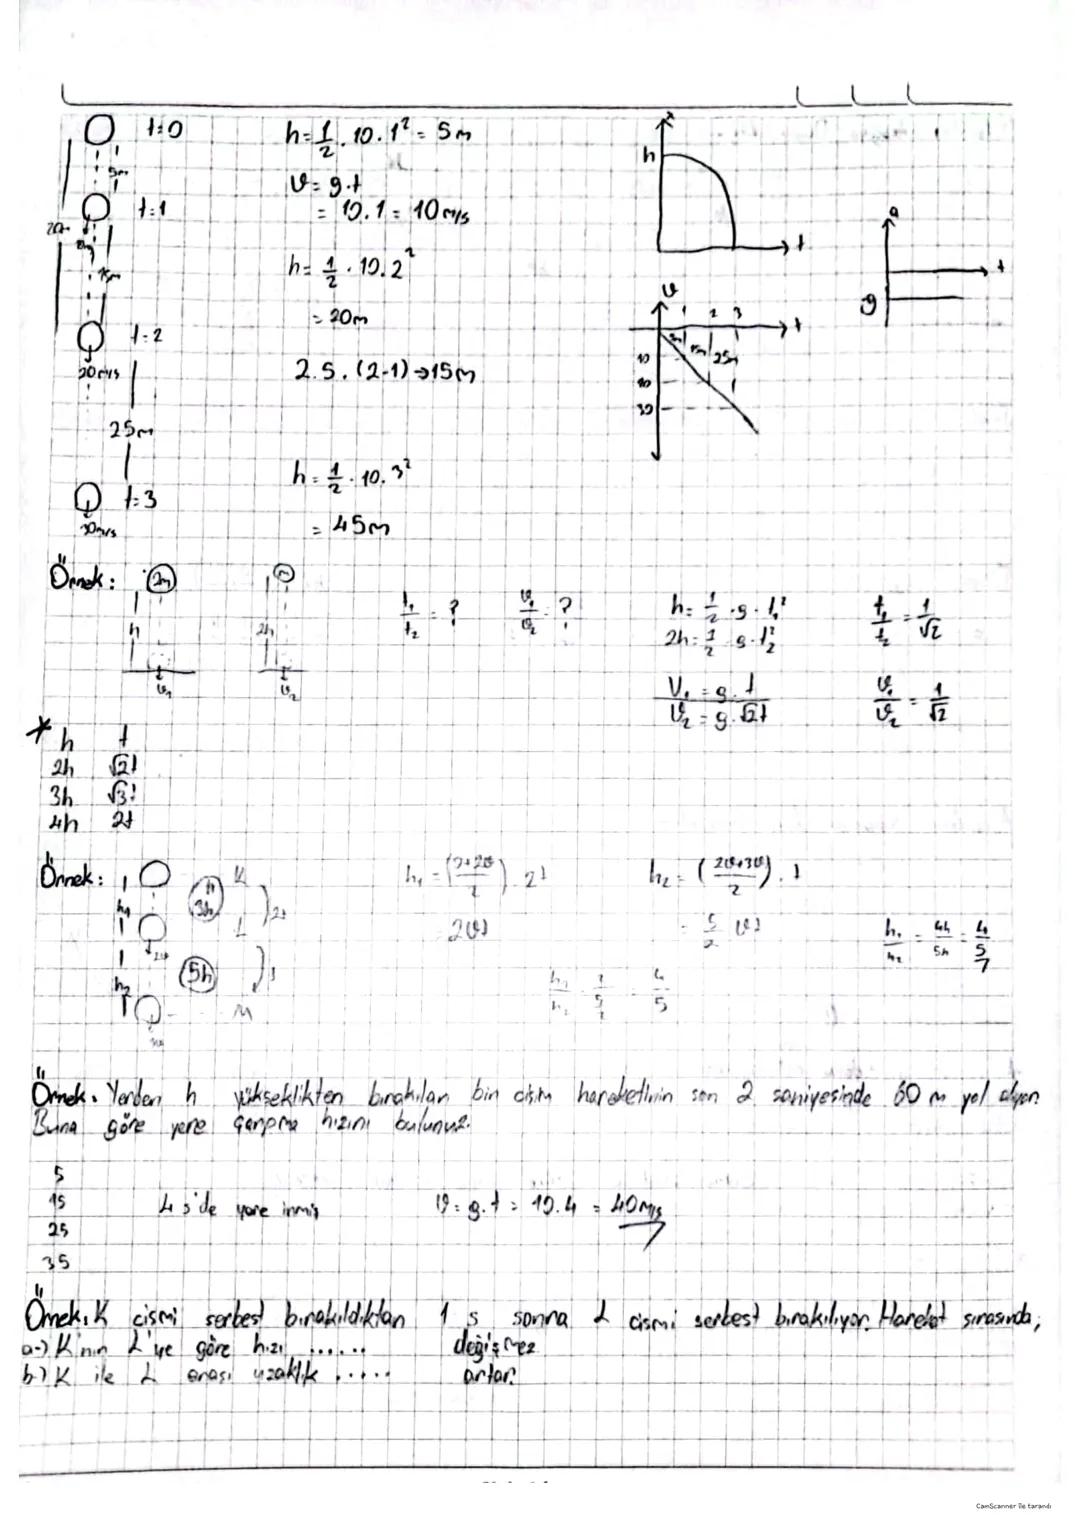 t=0 h=1/2 . 10. 1² = 5m
5m
v = g.t
t=1 = 10.1 = 10 m/s
h= 1/2 . 10.2²
15m
= 20m
t=2
20 m/s 2.5.(2-1)→15m
25m
h= 1/2 . 10. 3²
t=3
30m/s = 45m
h
t
a
t
g
v
1 2 3 t
5m 15m 25m
10
30
Örnek: 2m m
h 2h
v₁ v₂
t₁/t₂ = ? v₁/v₂ = ?
h= 1/2 . g . t₁²
2h= 1/2 . g . t₂²
t₁/t₂ = 1/√2
V₁ = g . t
V₂ = g . √2t
v₁/v₂ = 1/√2
* h t
2h √2t
3h √3t
4h 2t
Örnek: K
h 3h
h₁ L 2t
2v
h₂ 5h t
M
h₁ = (0+2v/2) . 2t
= 2vt
h₂ = (2v+3v/2) . t
= 5/2 vt
h₁/h₂ = 2/(5/2) = 4/5
h₁/h₂ = 4h/5h = 4/5
Örnek. Yerden h yükseklikten bırakılan bir cisim hareketinin son 2 saniyesinde 60 m yol alıyor.
Buna göre yere çarpma hızını bulunuz.
5
15 4 s'de yere inmiş v = g.t = 10.4 = 40 m/s
25
35
Örnek. K cismi serbest bırakıldıktan 1 s sonra L cismi serbest bırakılıyor. Hareket sırasında;
a-) K'nın L'ye göre hızı ...... değişmez
b-) K ile L arası uzaklık ..... artar.
CamScanner ile tarandı